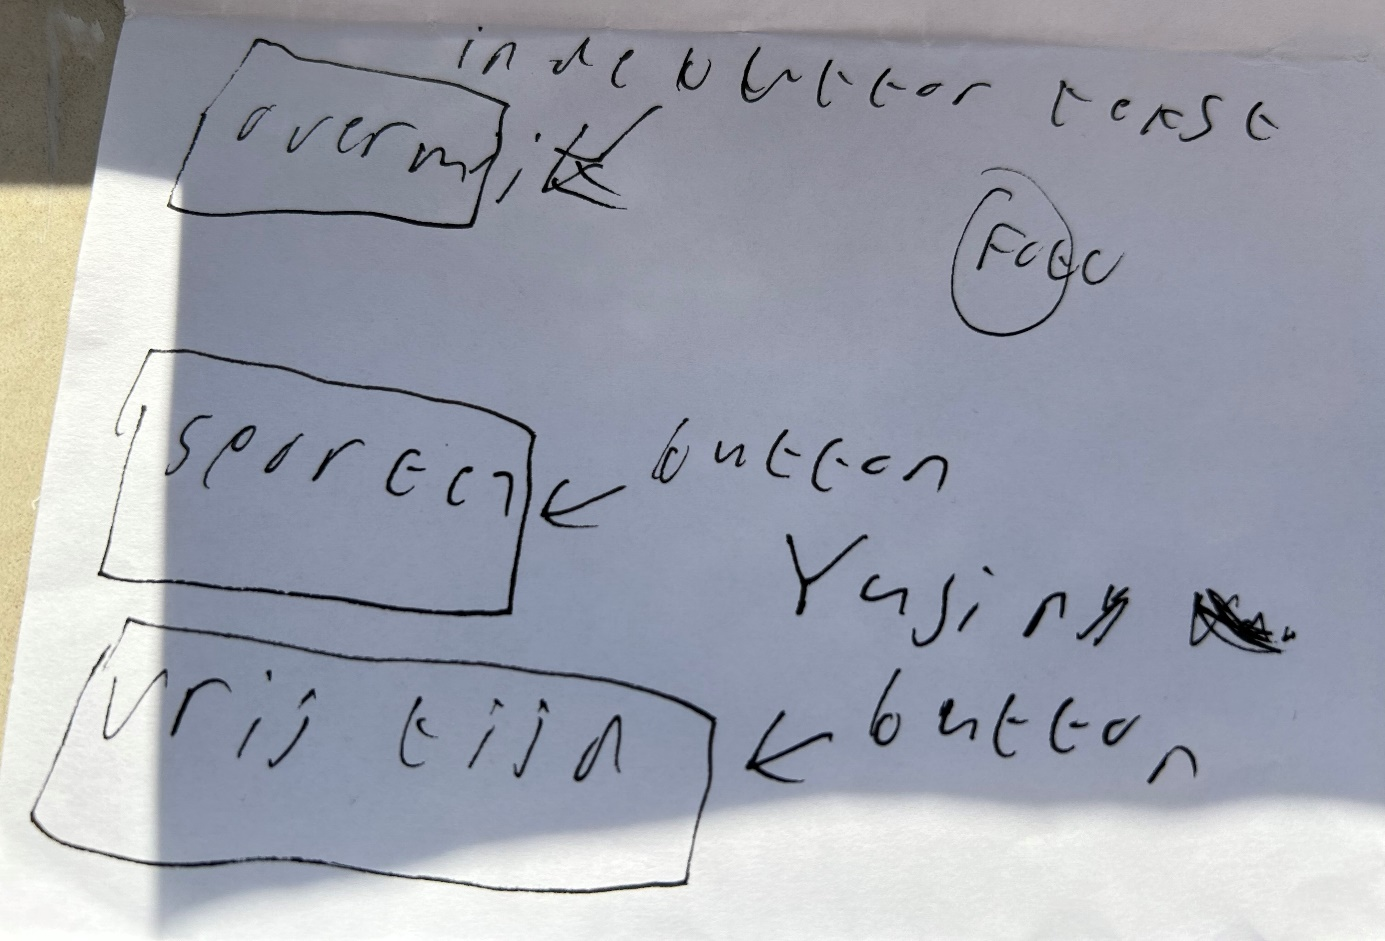 in de button tekst
over mij
Foto
sporten
button
Yasin
vrij tijd
button